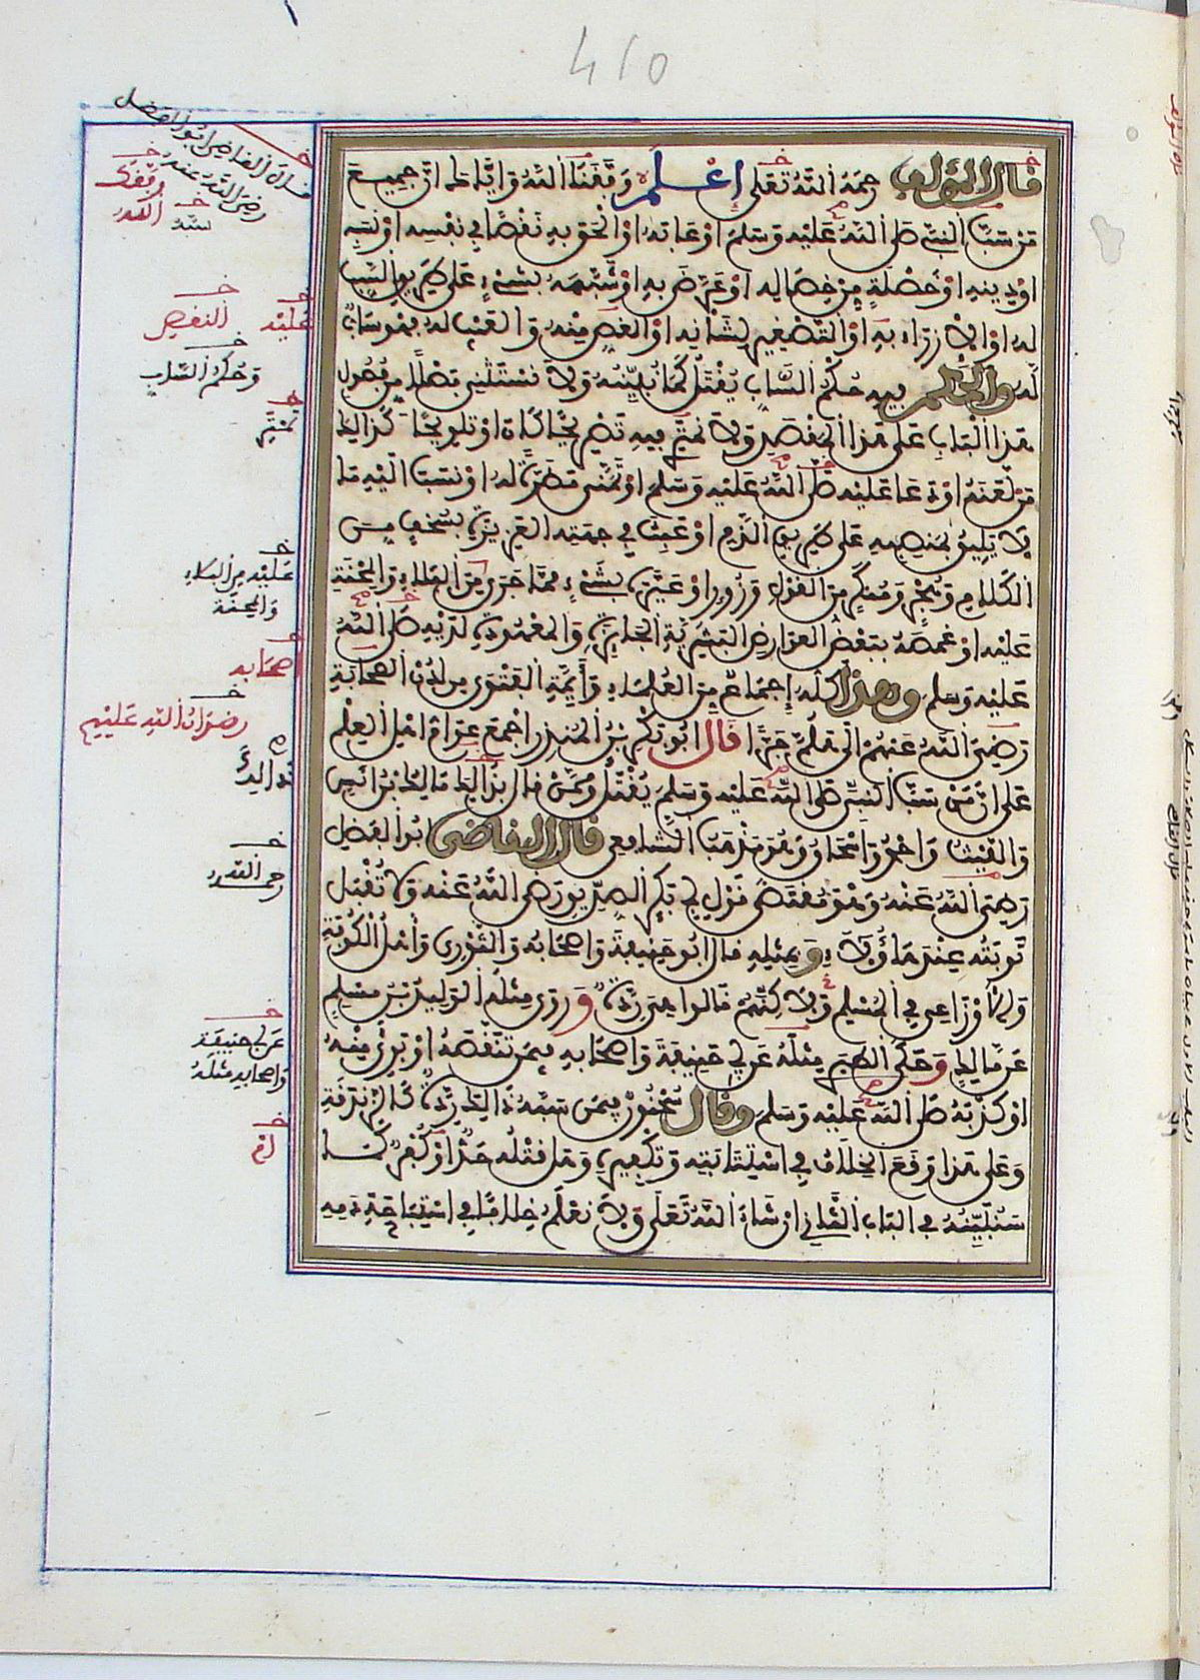 410
قال المؤلف رحمه الله تعلى إعلم وفقنا الله وإياك ان جميع
من سب النبي صلى الله عليه وسلم او عابه او الحق به نقصا في نفسه او نسبه
او دينه او خصلة من خصاله او عرض به او شبهه بشيء على طريق السب
له او الازراء به او التصغير لشانه او الغض منه والعيب له فهو ساب
له والحكم فيه حكم الساب يقتل كما نبينه ولا نستثني فصلا من فصول
هذا الباب على هذا المقصد ولا نمتر فيه تصريحا كان او تلويحا وكذالك
من لعنه او دعا عليه صلى الله عليه وسلم او تمنى مضرة له او نسب اليه ما
لا يليق بمنصبه على طريق الذم او عبث في جهته العزيزة بسخف من
الكلام وهجر ومنكر من القول وزور او عيره بشيء مما جرى من البلاء والمحنة
عليه او غمصه ببعض العوارض البشرية الجايزة والمعهودة لديه صلى الله
عليه وسلم وهذا كله إجماع من العلماء وأيمة الفتوى من لدن الصحابة
رضي الله عنهم الى هلم جرا قال ابو بكر بن المنذر اجمع عوام اهل العلم
على ان من سب النبي صلى الله عليه وسلم يقتل وممن قال بذالك مالك بن انس
والليث واحمد واسحاق وهو مذهب الشافعي قال القاضي ابو الفضل
رضي الله عنه وهو مقتضى قول ابي بكر الصديق رضي الله عنه ولا تقبل
توبته عند هاؤلاء وبمثله قال ابو حنيفة واصحابه والثوري وأهل الكوفة
والاوزاعي في المسلم ولاكنهم قالوا هي ردة وروى مثله الوليد بن مسلم
عن مالك وحكى الطبري مثله عن ابي حنيفة واصحابه فيمن تنقصه او برئ منه
او كذبه صلى الله عليه وسلم وقال سحنون فيمن سبه ذالك ردة كالزندقة
وعلى هذا وقع الخلاف في استتابته وتكفيره وهل قتله حد او كفر كما
سنبينه في الباب الثاني ان شاء الله تعلى ولا نعلم خلافا في استباحة دمه
قال القاضي ابو الفضل
رضي الله عنه وفقك
الله
سبه
عليه النقص
وحكم الساب
نمتري
عليه من البلاء
والمحنة
اصحابه
رضوان الله عليهم
رحمه الله
عن ابي حنيفة
واصحابه مثله
ام